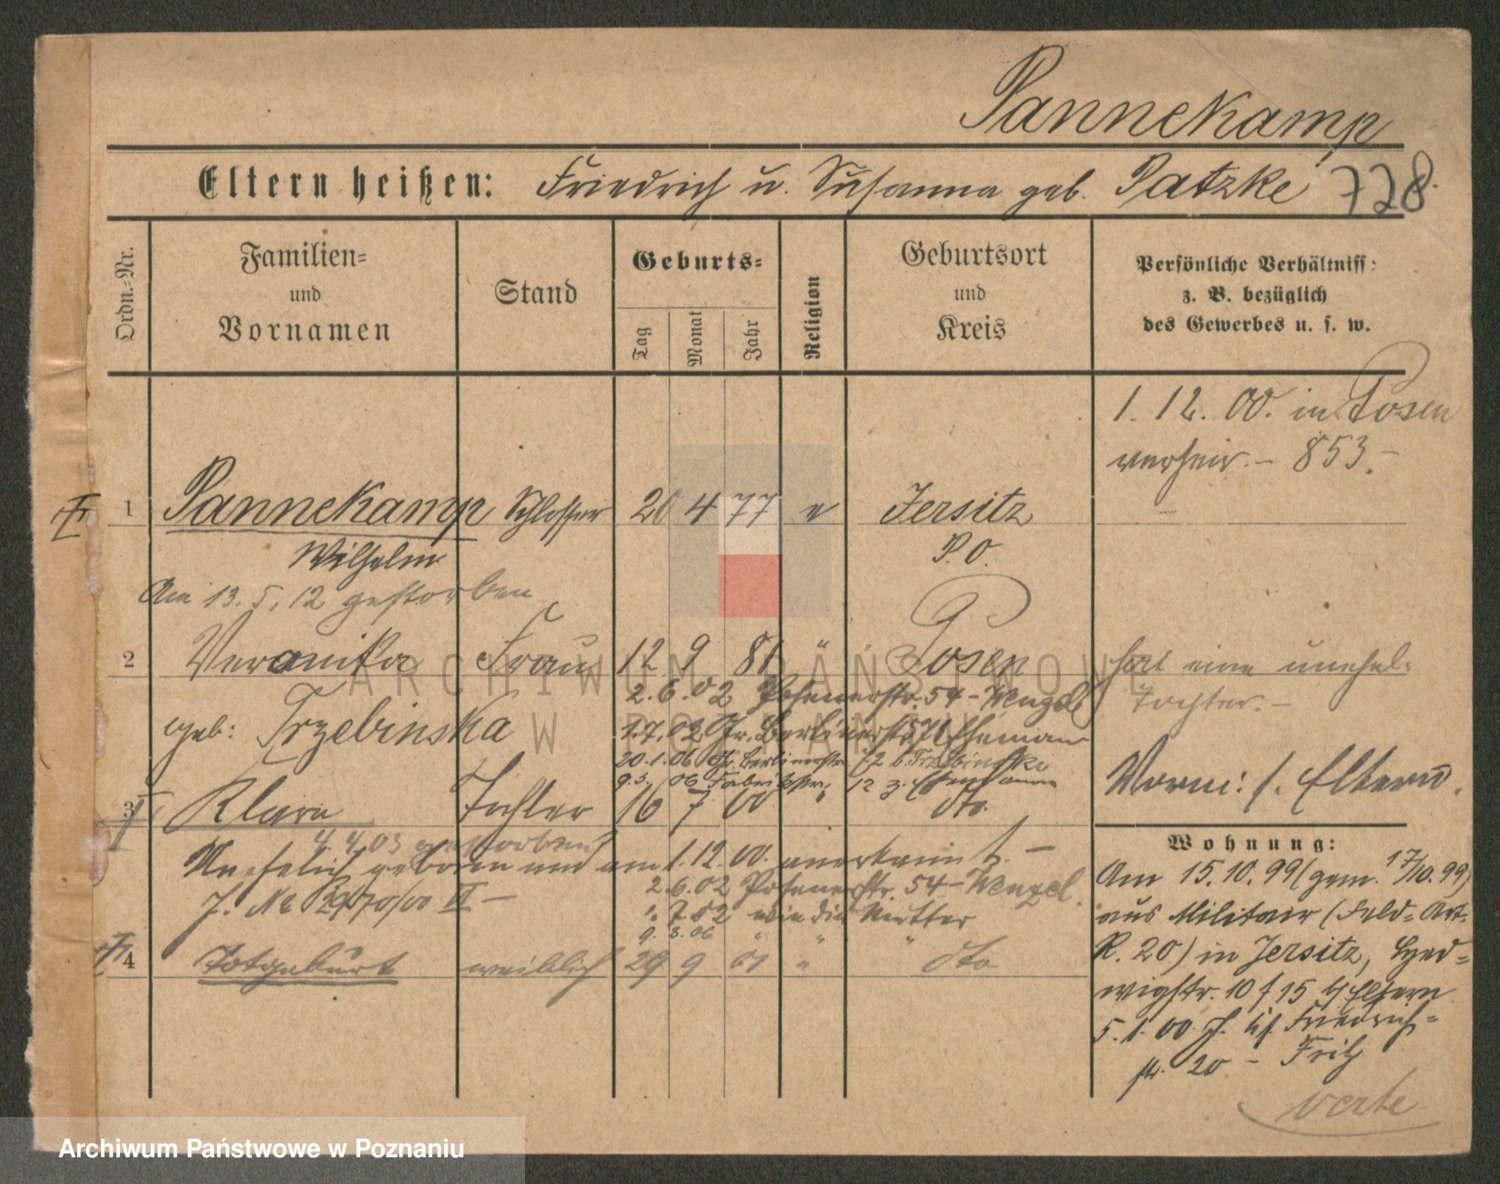 Pannekamp
Eltern heißen: Friedrich u. Susanna geb. Patzke 728.
Ordn.-Nr.
Familien-
und
Vornamen
Stand
Geburts-
Tag
Monat
Jahr
Religion
Geburtsort
und
Kreis
Persönliche Verhältniss:
z. B. bezüglich
des Gewerbes u. s. w.
1. 12. 00. in Posen
verheir. – 853. –
1 Pannekamp Schlosser 20 4 77 e Jersitz
Wilhelm P. O.
Am 13. 5. 12 gestorben
2 Veronika Frau 12 9 81 " Posen hat eine unehel:
2. 6. 02 Posenerstr. 54 – Wenzel Tochter. –
geb: Trzebinska
1. 7. 02 Gr. Berlinerstr.
20. 1. 06 Gr. Berlinerstr. 72 b. Trzebinski
9. 3. 06 Fabrikstr. 12
3 Klara Tochter 16 7 00 " dto.
Vorm: s. Eltern.
4. 4. 03 gestorben
Unehelich geboren und am 1. 12. 00. anerkannt. –
J. No 2970/00 II –
2. 6. 02 Posenerstr. 54 – Wenzel.
1. 7. 02 wie die Mutter
9. 3. 06 " " "
4 Totgeburt weiblich 29 9 01 " dto
Wohnung:
Am 15. 10. 99 (gem. 17/10. 99)
aus Militair (Feld-Art.
R. 20) in Jersitz, Hed-
wigstr. 10 f 15 b/ Eltern.
5. 1. 00 J. Friedrich-
str. 20 – Fritz
verte
ARCHIWUM PAŃSTWOWE
W POZNANIU
Archiwum Państwowe w Poznaniu